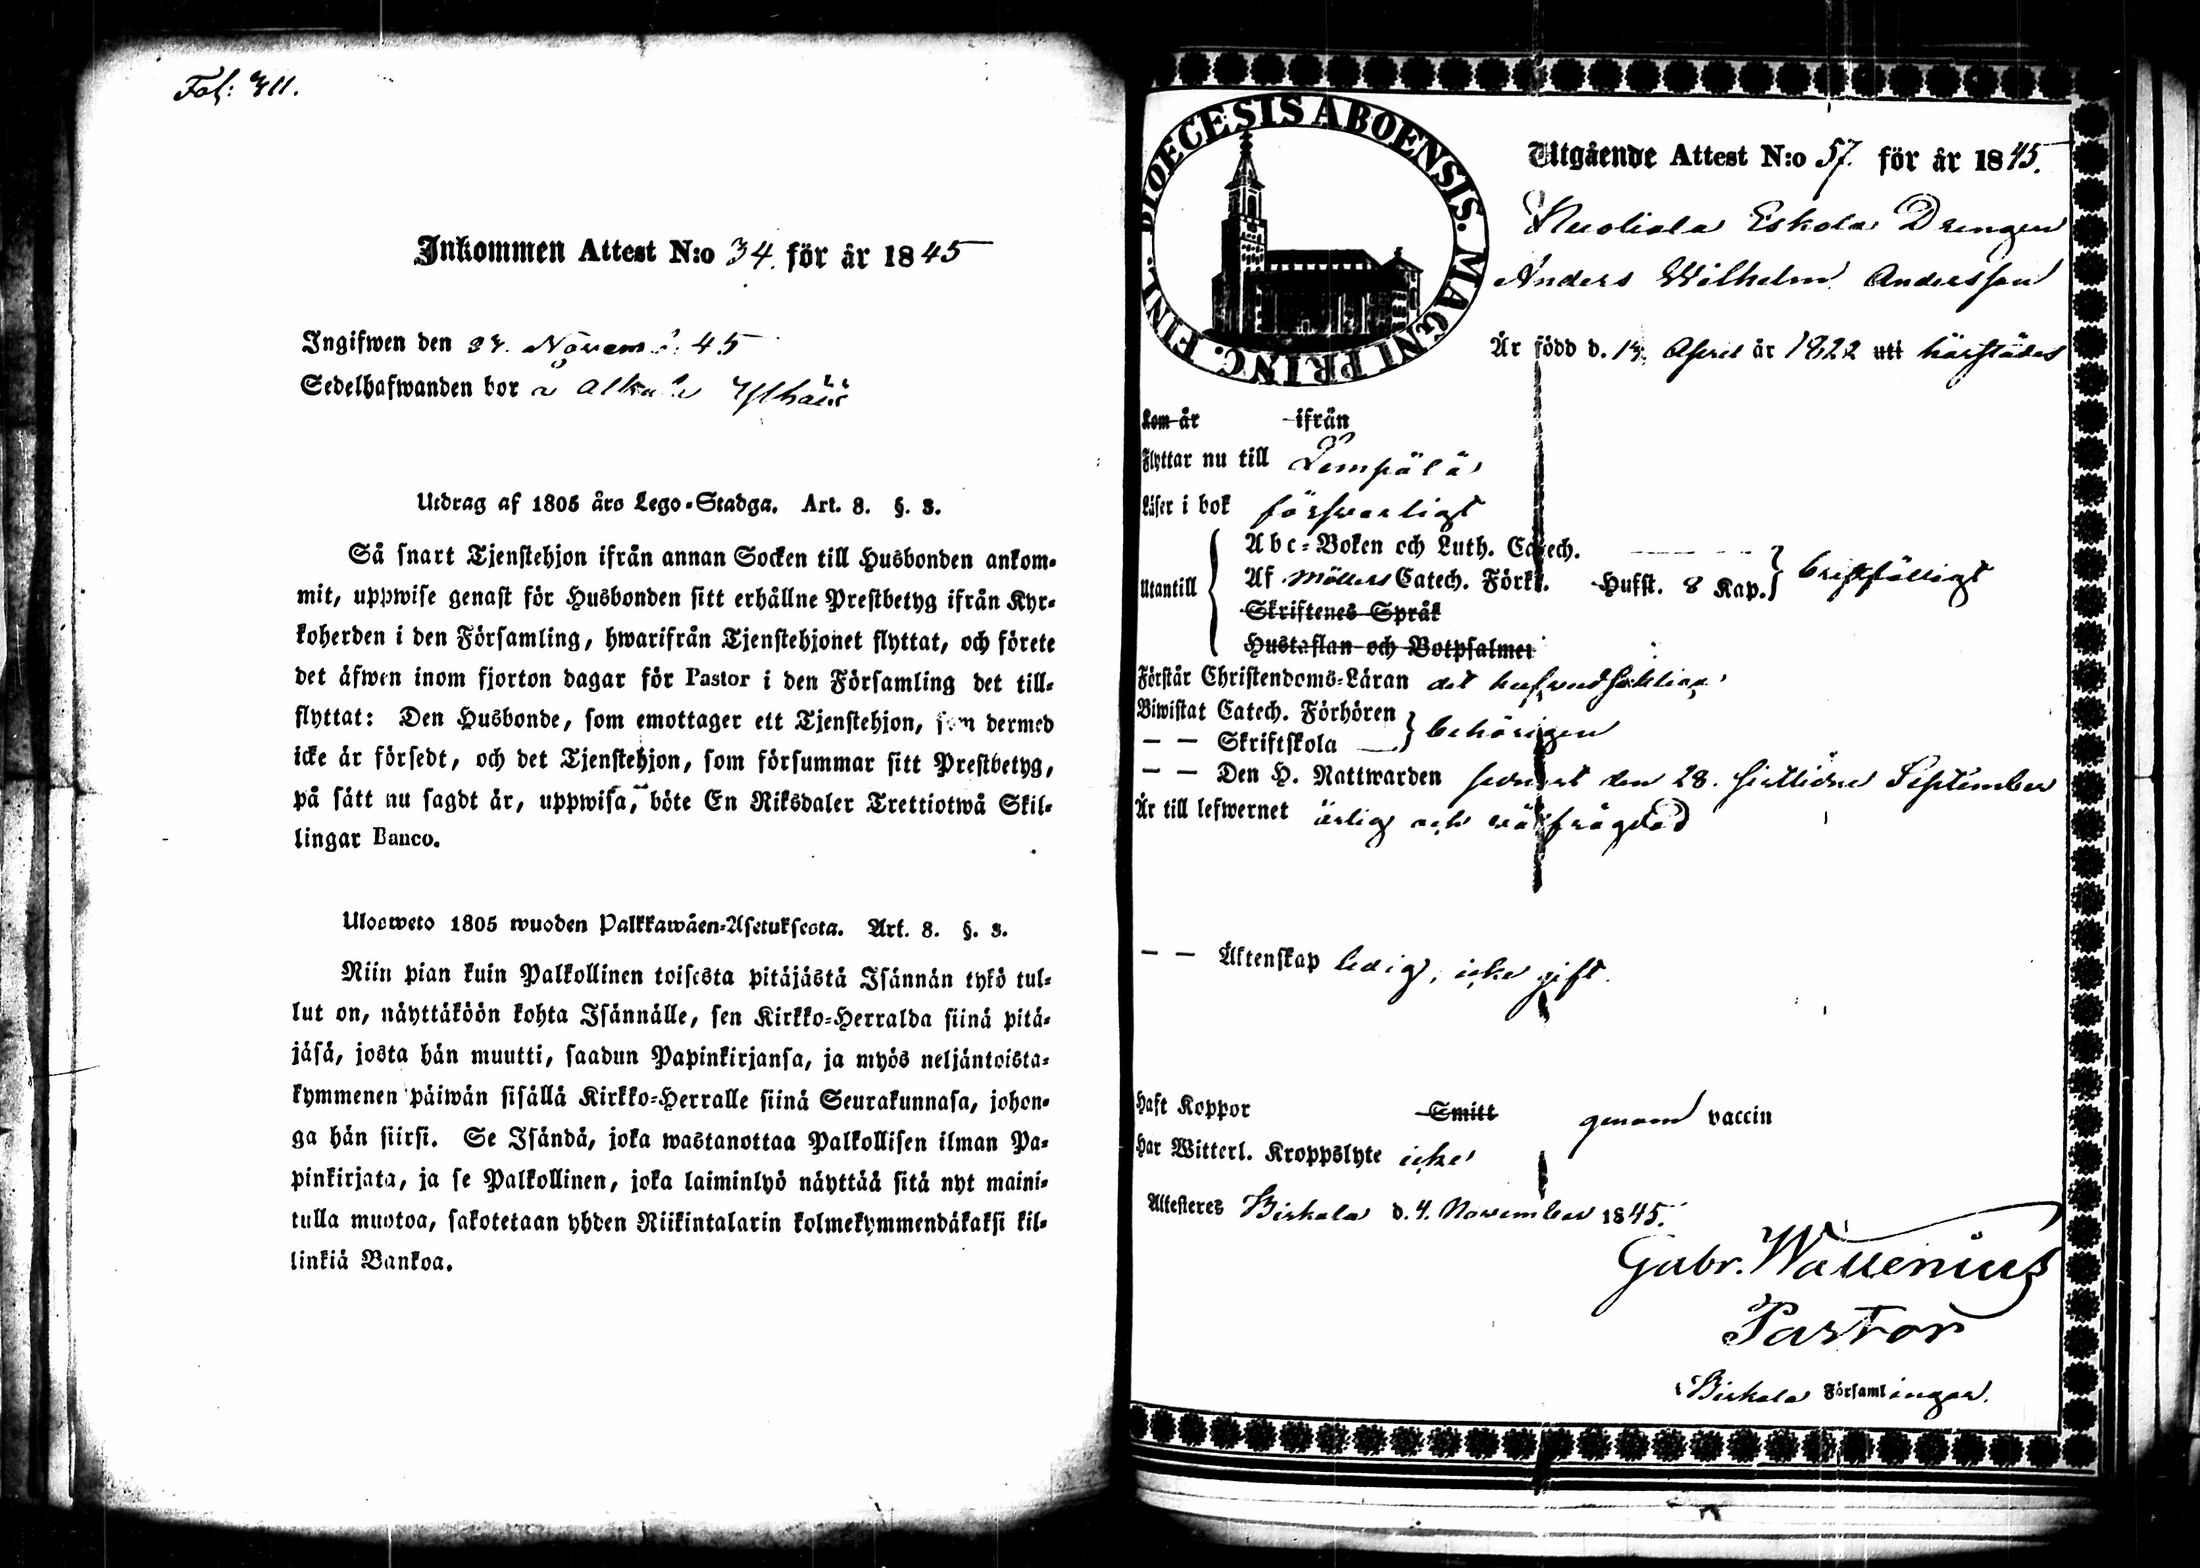 Fol: 311.
Inkommen Attest N:o 34. för år 1845
Ingifwen den 27. Novemb: 45
Sedelhafwanden bor å Alkula Ylhäis
Utdrag af 1805 års Lego-Stadga. Art. 8. §. 3.
Så snart Tjenstehjon ifrån annan Socken till Husbonden ankom-
mit, uppwise genast för Husbonden sitt erhållne Prestbetyg ifrån Kyr-
koherden i den Församling, hwarifrån Tjenstehjonet flyttat, och förete
det äfwen inom fjorton dagar för Pastor i den Församling det till-
flyttat: Den Husbonde, som emottager ett Tjenstehjon, som dermed
icke är försedt, och det Tjenstehjon, som försummar sitt Prestbetyg,
på sätt nu sagdt är, uppwisa, böte En Riksdaler Trettiotwå Skil-
lingar Banco.
Ulosweto 1805 wuoden Palkkawäen-Asetuksesta. Art. 8. §. 3.
Niin pian kuin Palkollinen toisesta pitäjästä Isännän tykö tul-
lut on, näyttäköön kohta Isännälle, sen Kirkko-Herralda siinä pitä-
jäsä, josta hän muutti, saadun Papinkirjansa, ja myös neljäntoista-
kymmenen päiwän sisällä Kirkko-Herralle siinä Seurakunnasa, johon-
ga hän siirsi. Se Isändä, joka wastanottaa Palkollisen ilman Pa-
pinkirjata, ja se Palkollinen, joka laiminlyö näyttää sitä nyt maini-
tulla muotoa, sakotetaan yhden Riikintalarin kolmekymmendäkaksi kil-
linkiä Bankoa.
DIOECESIS ABOENSIS. MAGNI PRINC. FINL.
Utgående Attest N:o 57. för år 1845.
Nuoliala Eskola Drengen
Anders Wilhelm Andersson
Är född d. 13. April år 1822 uti härstädes
Kom år ifrån
Flyttar nu till Lempälä
Läser i bok försvarligt
Utantill
Abc-Boken och Luth. Catech.
Af Möllers Catech. Förkl. Hufst. 8 Kap. bristfälligt
Skriftenes Språk
Hustaflan och Botpsalmer
Förstår Christendoms-Läran det hufvudsakliga
Biwistat Catech. Förhören
— — Skriftskola behörigen
— — Den H. Nattwarden senast den 28. sistlidne September
Är till lefwernet ärlig och välfrägdad
— — Äktenskap ledig, icke gift.
Haft Koppor Smitt genom vaccin
Har Witterl. Kroppslyte icke
Attesteres Birkala d. 4. November 1845.
Gabr. Wallenius
Pastor
Birkala Församlingar.